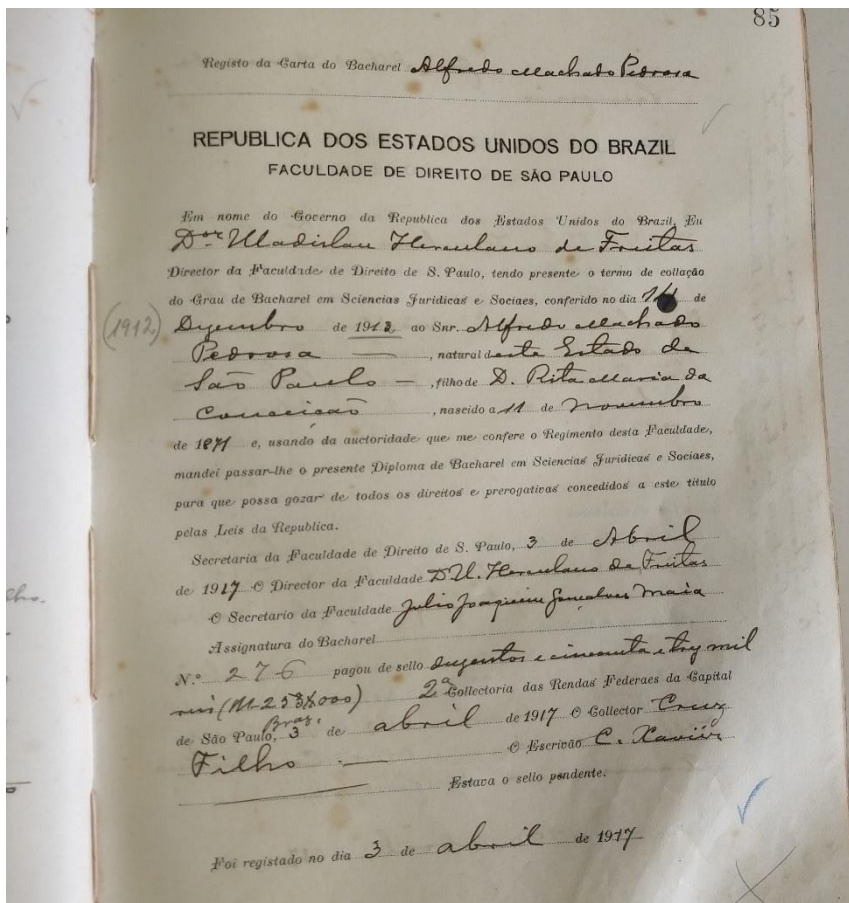 85
Registo da Carta do Bacharel Alfredo Machado Pedrosa
REPUBLICA DOS ESTADOS UNIDOS DO BRAZIL
FACULDADE DE DIREITO DE SÃO PAULO
Em nome do Governo da Republica dos Estados Unidos do Brazil, Eu
Dor. Uladislau Herculano de Freitas
Director da Faculdade de Direito de S. Paulo, tendo presente o termo de collação
do Grau de Bacharel em Sciencias Juridicas e Sociaes, conferido no dia de
(1912) Dezembro de 1912 ao Snr. Alfredo Machado
Pedrosa —, natural deste Estado de
São Paulo —, filho de D. Rita Maria da
Conceição, nascido a 11 de Novembro
de 1871 e, usando da auctoridade que me confere o Regimento desta Faculdade,
mandei passar-lhe o presente Diploma de Bacharel em Sciencias Juridicas e Sociaes,
para que possa gozar de todos os direitos e prerogativas concedidos a este titulo
pelas Leis da Republica.
Secretaria da Faculdade de Direito de S. Paulo, 3 de Abril
de 1917 O Director da Faculdade D U. Herculano de Freitas
O Secretario da Faculdade Julio Joaquim Gonçalves Maia
Assignatura do Bacharel
N.º 276 pagou de sello duzentos e cincoenta e trez mil
reis 2ª Collectoria das Rendas Federaes da Capital
Braz,
de São Paulo, 3 de abril de 1917 O Collector Cruz
Filho — O Escrivão C. Xavier
Estava o sello pendente.
Foi registado no dia 3 de abril de 1917